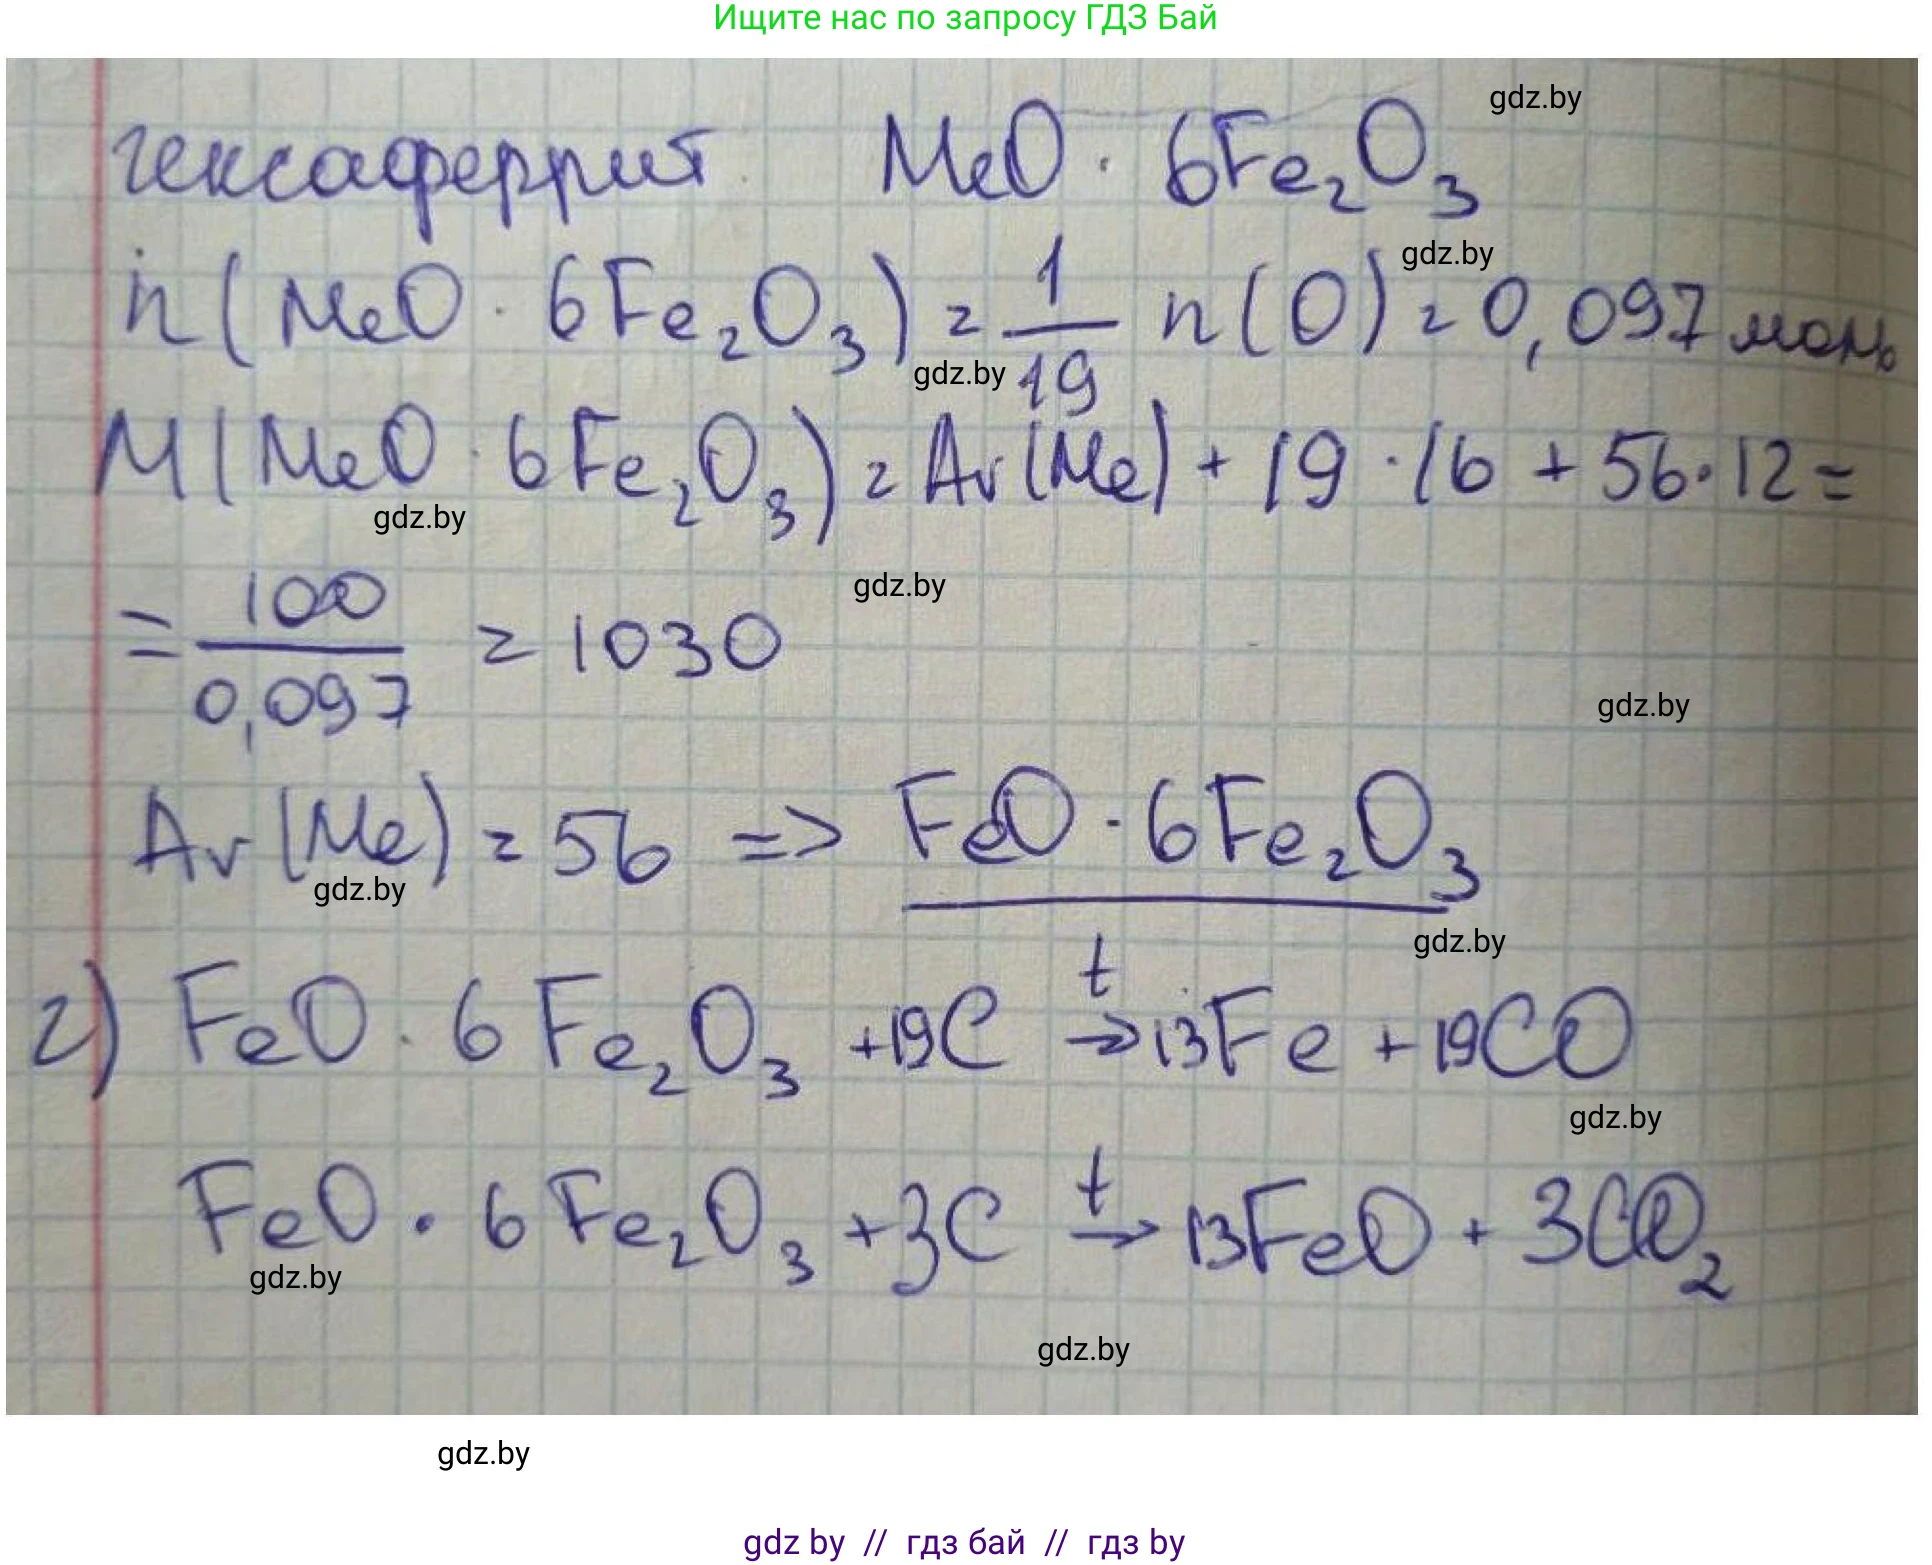 Ищите нас по запросу ГДЗ Бай
gdz.by
гексаферрит MeO · 6Fe₂O₃
gdz.by
n(MeO · 6Fe₂O₃) = 1/19 n(O) = 0,097 моль
gdz.by
M(MeO · 6Fe₂O₃) = Ar(Me) + 19 · 16 + 56 · 12 =
gdz.by
gdz.by
= 100/0,097 = 1030
gdz.by
Ar(Me) = 56 => FeO · 6Fe₂O₃
gdz.by
gdz.by
г) FeO · 6Fe₂O₃ + 19C t→ 13Fe + 19CO
gdz.by
FeO · 6Fe₂O₃ + 3C t→ 13FeO + 3CO₂
gdz.by
gdz.by
gdz.by
gdz by // гдз бай // гдз by